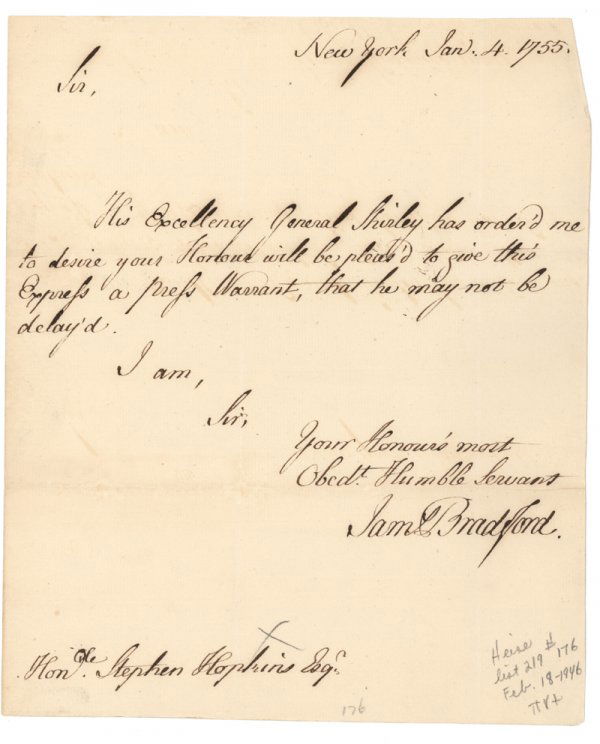 New York Jan. 4. 1755.
Sir,
His Excellency General Shirley has order'd me
to desire your Honour will be pleas'd to give this
Express a Press Warrant, that he may not be
delay'd.
I am,
Sir,
Your Honour's most
Obedt. Humble Servant
Bradford.
Honble. Stephen Hopkins Esqr.
Heise #
list 219 176
Feb. 18-1946
176